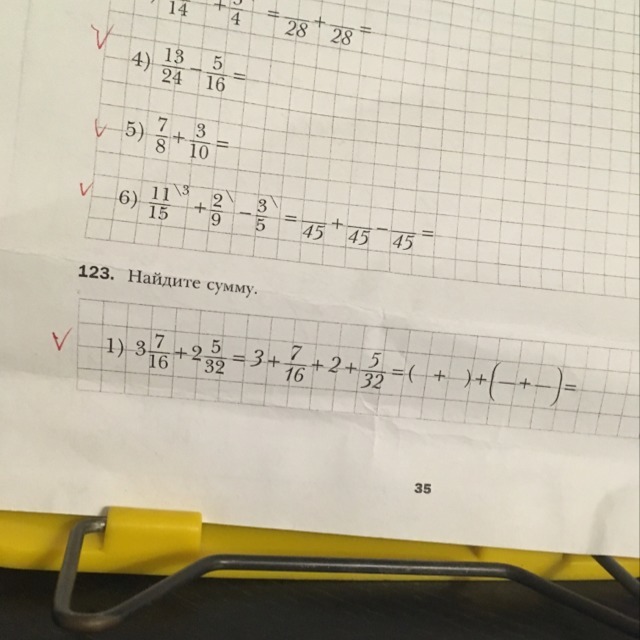 14 + 4 = 28 + 28 =
4) 13/24 − 5/16 =
5) 7/8 + 3/10 =
6) 11/15 \3 + 2/9 \ − 3/5 \ = /45 + /45 − /45 =
123. Найдите сумму.
1) 3 7/16 + 2 5/32 = 3 + 7/16 + 2 + 5/32 = ( + ) + (— + —) =
35